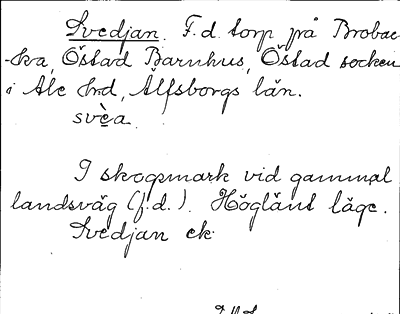 Svedjan. F.d. torp på Brobac-
-ka, Östad Barnhus, Östad socken
i Ale hrd, Älfsborgs län.
svèa.
I skogsmark vid gammal
landsväg (f.d.). Höglänt läge.
Svedjan ek